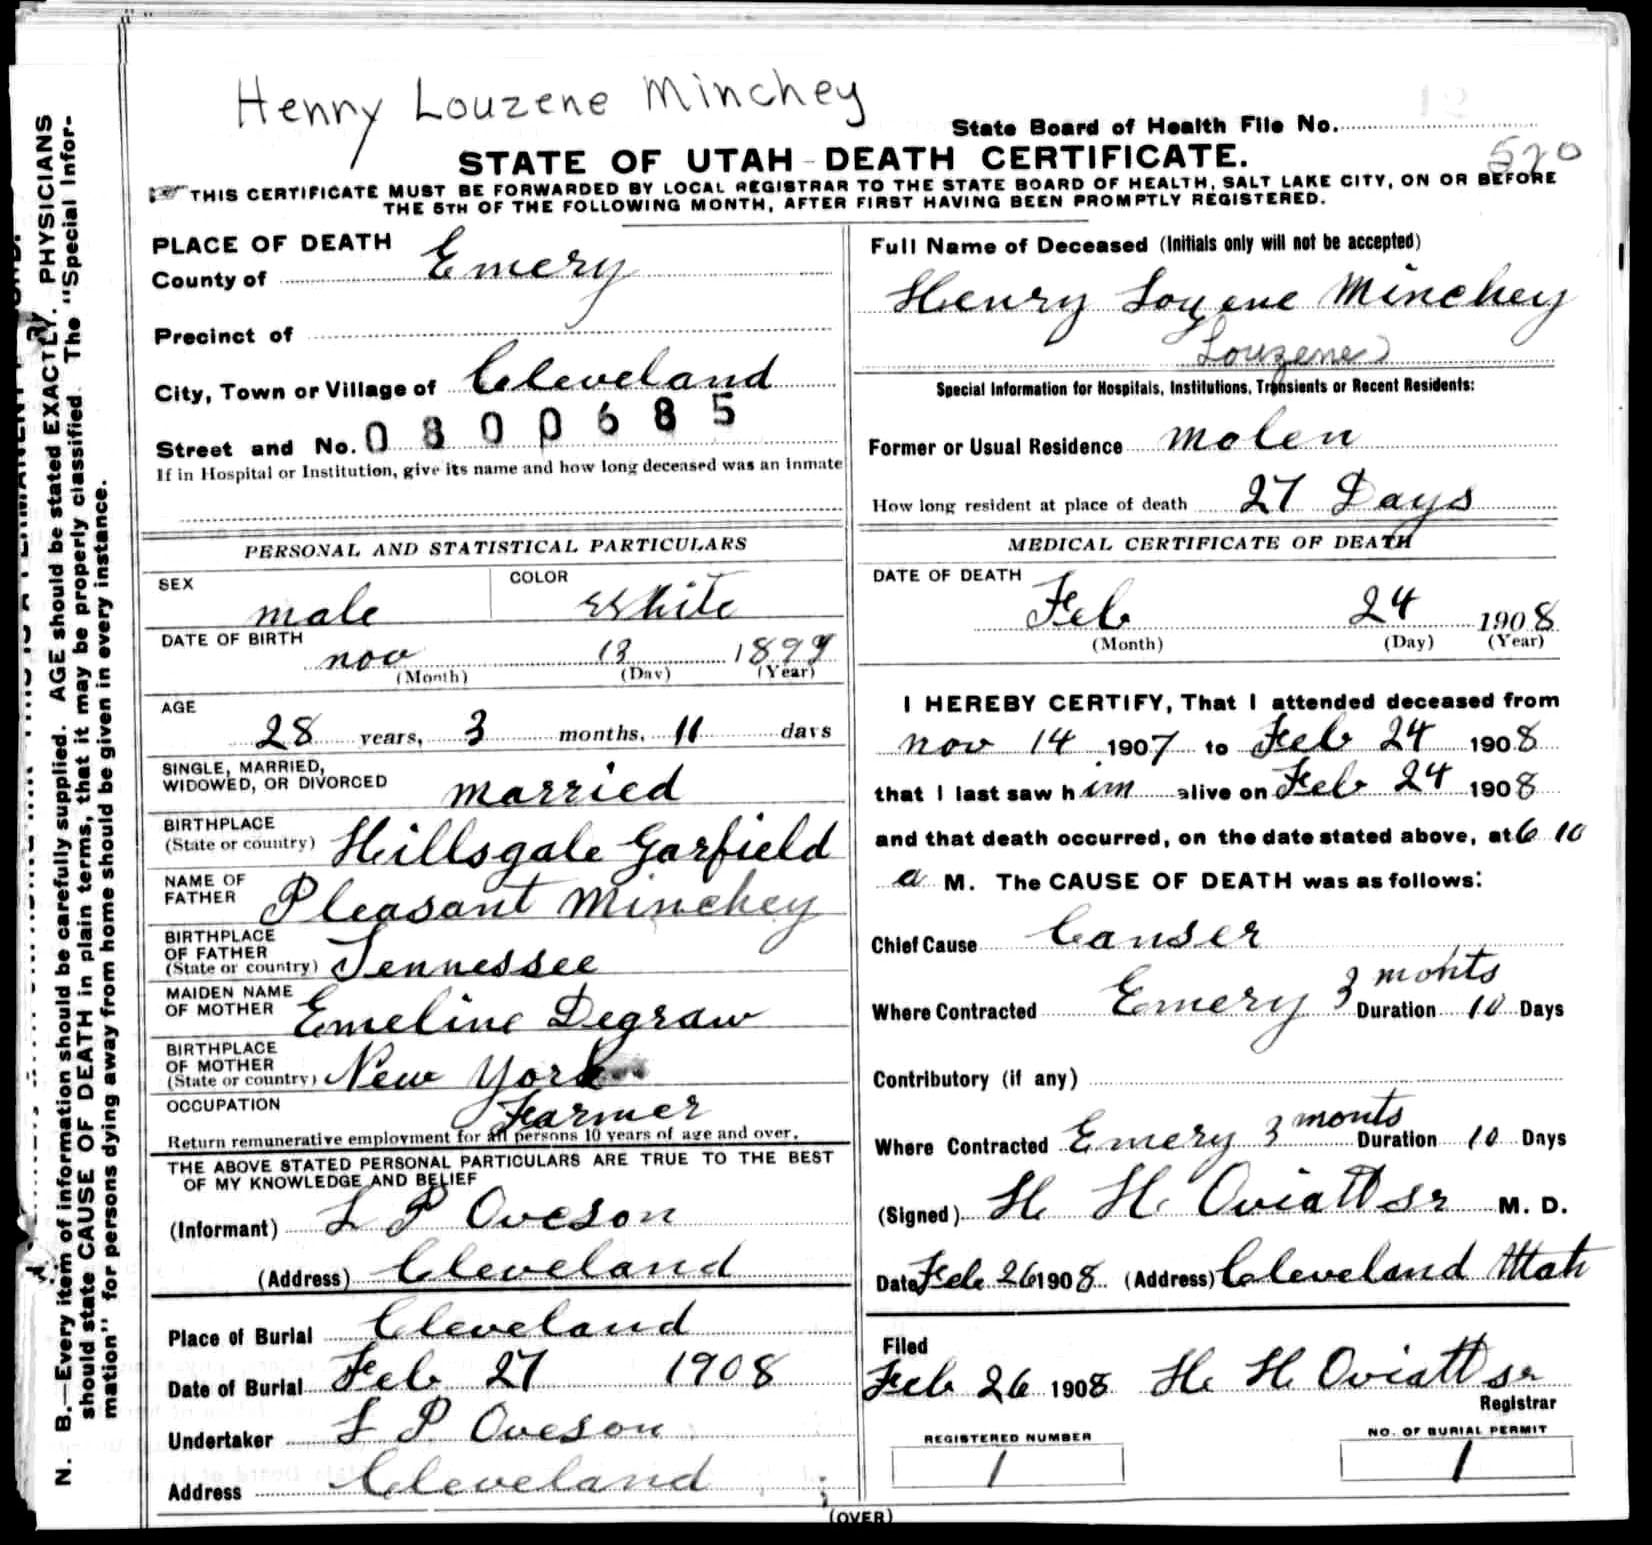 Henry Louzene Minchey
State Board of Health File No.
520
STATE OF UTAH - DEATH CERTIFICATE.
THIS CERTIFICATE MUST BE FORWARDED BY LOCAL REGISTRAR TO THE STATE BOARD OF HEALTH, SALT LAKE CITY, ON OR BEFORE
THE 5TH OF THE FOLLOWING MONTH, AFTER FIRST HAVING BEEN PROMPTLY REGISTERED.
PLACE OF DEATH
County of Emery
Precinct of
City, Town or Village of Cleveland
Street and No. 0800685
If in Hospital or Institution, give its name and how long deceased was an inmate
PERSONAL AND STATISTICAL PARTICULARS
SEX male COLOR White
DATE OF BIRTH nov 13 1879
(Month) (Day) (Year)
AGE
28 years, 3 months, 11 days
SINGLE, MARRIED,
WIDOWED, OR DIVORCED married
BIRTHPLACE
(State or country) Hillsgale Garfield
NAME OF
FATHER Pleasant Minchey
BIRTHPLACE
OF FATHER
(State or country) Tennessee
MAIDEN NAME
OF MOTHER Emeline Degraw
BIRTHPLACE
OF MOTHER
(State or country) New York
OCCUPATION Farmer
Return remunerative employment for all persons 10 years of age and over.
THE ABOVE STATED PERSONAL PARTICULARS ARE TRUE TO THE BEST
OF MY KNOWLEDGE AND BELIEF
(Informant) L P Oveson
(Address) Cleveland
Place of Burial Cleveland
Date of Burial Feb 27 1908
Undertaker L P Oveson
Address Cleveland
Full Name of Deceased (Initials only will not be accepted)
Henry Lozene Minchey
Louzene
Special Information for Hospitals, Institutions, Transients or Recent Residents:
Former or Usual Residence Molen
How long resident at place of death 27 Days
MEDICAL CERTIFICATE OF DEATH
DATE OF DEATH
Feb 24 1908
(Month) (Day) (Year)
I HEREBY CERTIFY, That I attended deceased from
nov 14 1907 to Feb 24 1908
that I last saw him alive on Feb 24 1908
and that death occurred, on the date stated above, at 6 10
a M. The CAUSE OF DEATH was as follows:
Chief Cause Canser
Where Contracted Emery 3 monts Duration 10 Days
Contributory (if any)
Where Contracted Emery 3 monts Duration 10 Days
(Signed) H. H. Oviatt sr M. D.
Date Feb 26 1908 (Address) Cleveland Utah
Filed
Feb 26 1908 H. H. Oviatt sr
Registrar
REGISTERED NUMBER
1
NO. OF BURIAL PERMIT
1
(OVER)
N. B.—Every item of information should be carefully supplied. AGE should be stated EXACTLY. PHYSICIANS
should state CAUSE OF DEATH in plain terms, that it may be properly classified. The "Special Infor-
mation" for persons dying away from home should be given in every instance.